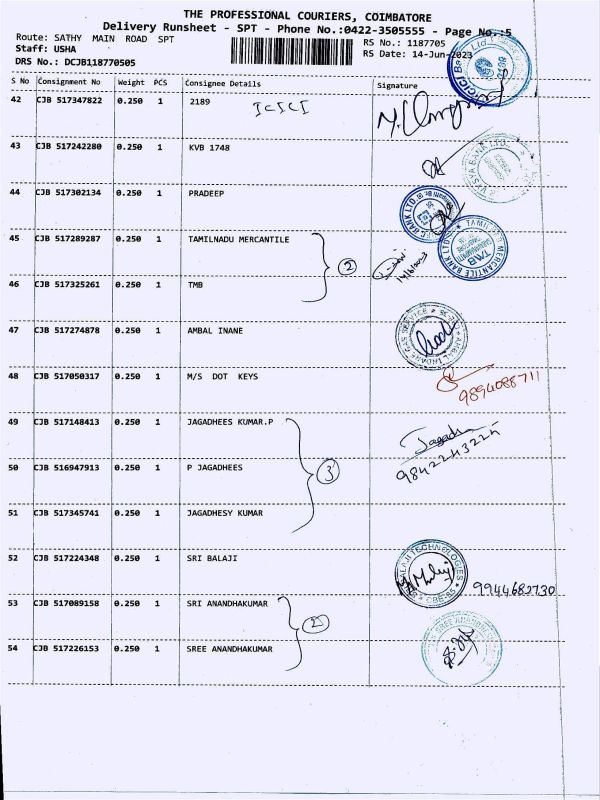 THE PROFESSIONAL COURIERS, COIMBATORE
Delivery Runsheet - SPT - Phone No.:0422-3505555 - Page No.:5
Route: SATHY MAIN ROAD SPT
RS No.: 1187705
Staff: USHA
RS Date: 14-Jun-2023
DRS No.: DCJB118770505
S No Consignment No Weight PCS Consignee Details Signature
42 CJB 517347822 0.250 1 2189 ICICI
43 CJB 517242280 0.250 1 KVB 1748
44 CJB 517302134 0.250 1 PRADEEP
45 CJB 517289287 0.250 1 TAMILNADU MERCANTILE
2
46 CJB 517325261 0.250 1 TMB
TAMILNAD MERCANTILE BANK LTD
TMB
47 CJB 517274878 0.250 1 AMBAL INANE
48 CJB 517050317 0.250 1 M/S DOT KEYS
9894088711
49 CJB 517148413 0.250 1 JAGADHEES KUMAR.P
Jagadh
9842243225
50 CJB 516947913 0.250 1 P JAGADHEES
3
51 CJB 517345741 0.250 1 JAGADHESY KUMAR
52 CJB 517224348 0.250 1 SRI BALAJI
BALAJI TECHNOLOGIES
9944682730
53 CJB 517089158 0.250 1 SRI ANANDHAKUMAR
2
54 CJB 517226153 0.250 1 SREE ANANDHAKUMAR